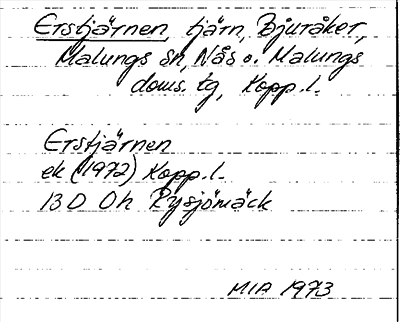 Erstjärnen, tjärn, Bjuråker,
Malungs sn, Nås o. Malungs
doms. tg, Kopp.l.
Erstjärnen
ek (1972) Kopp.l.
13D 0h Rysjömäck
MIA 1973